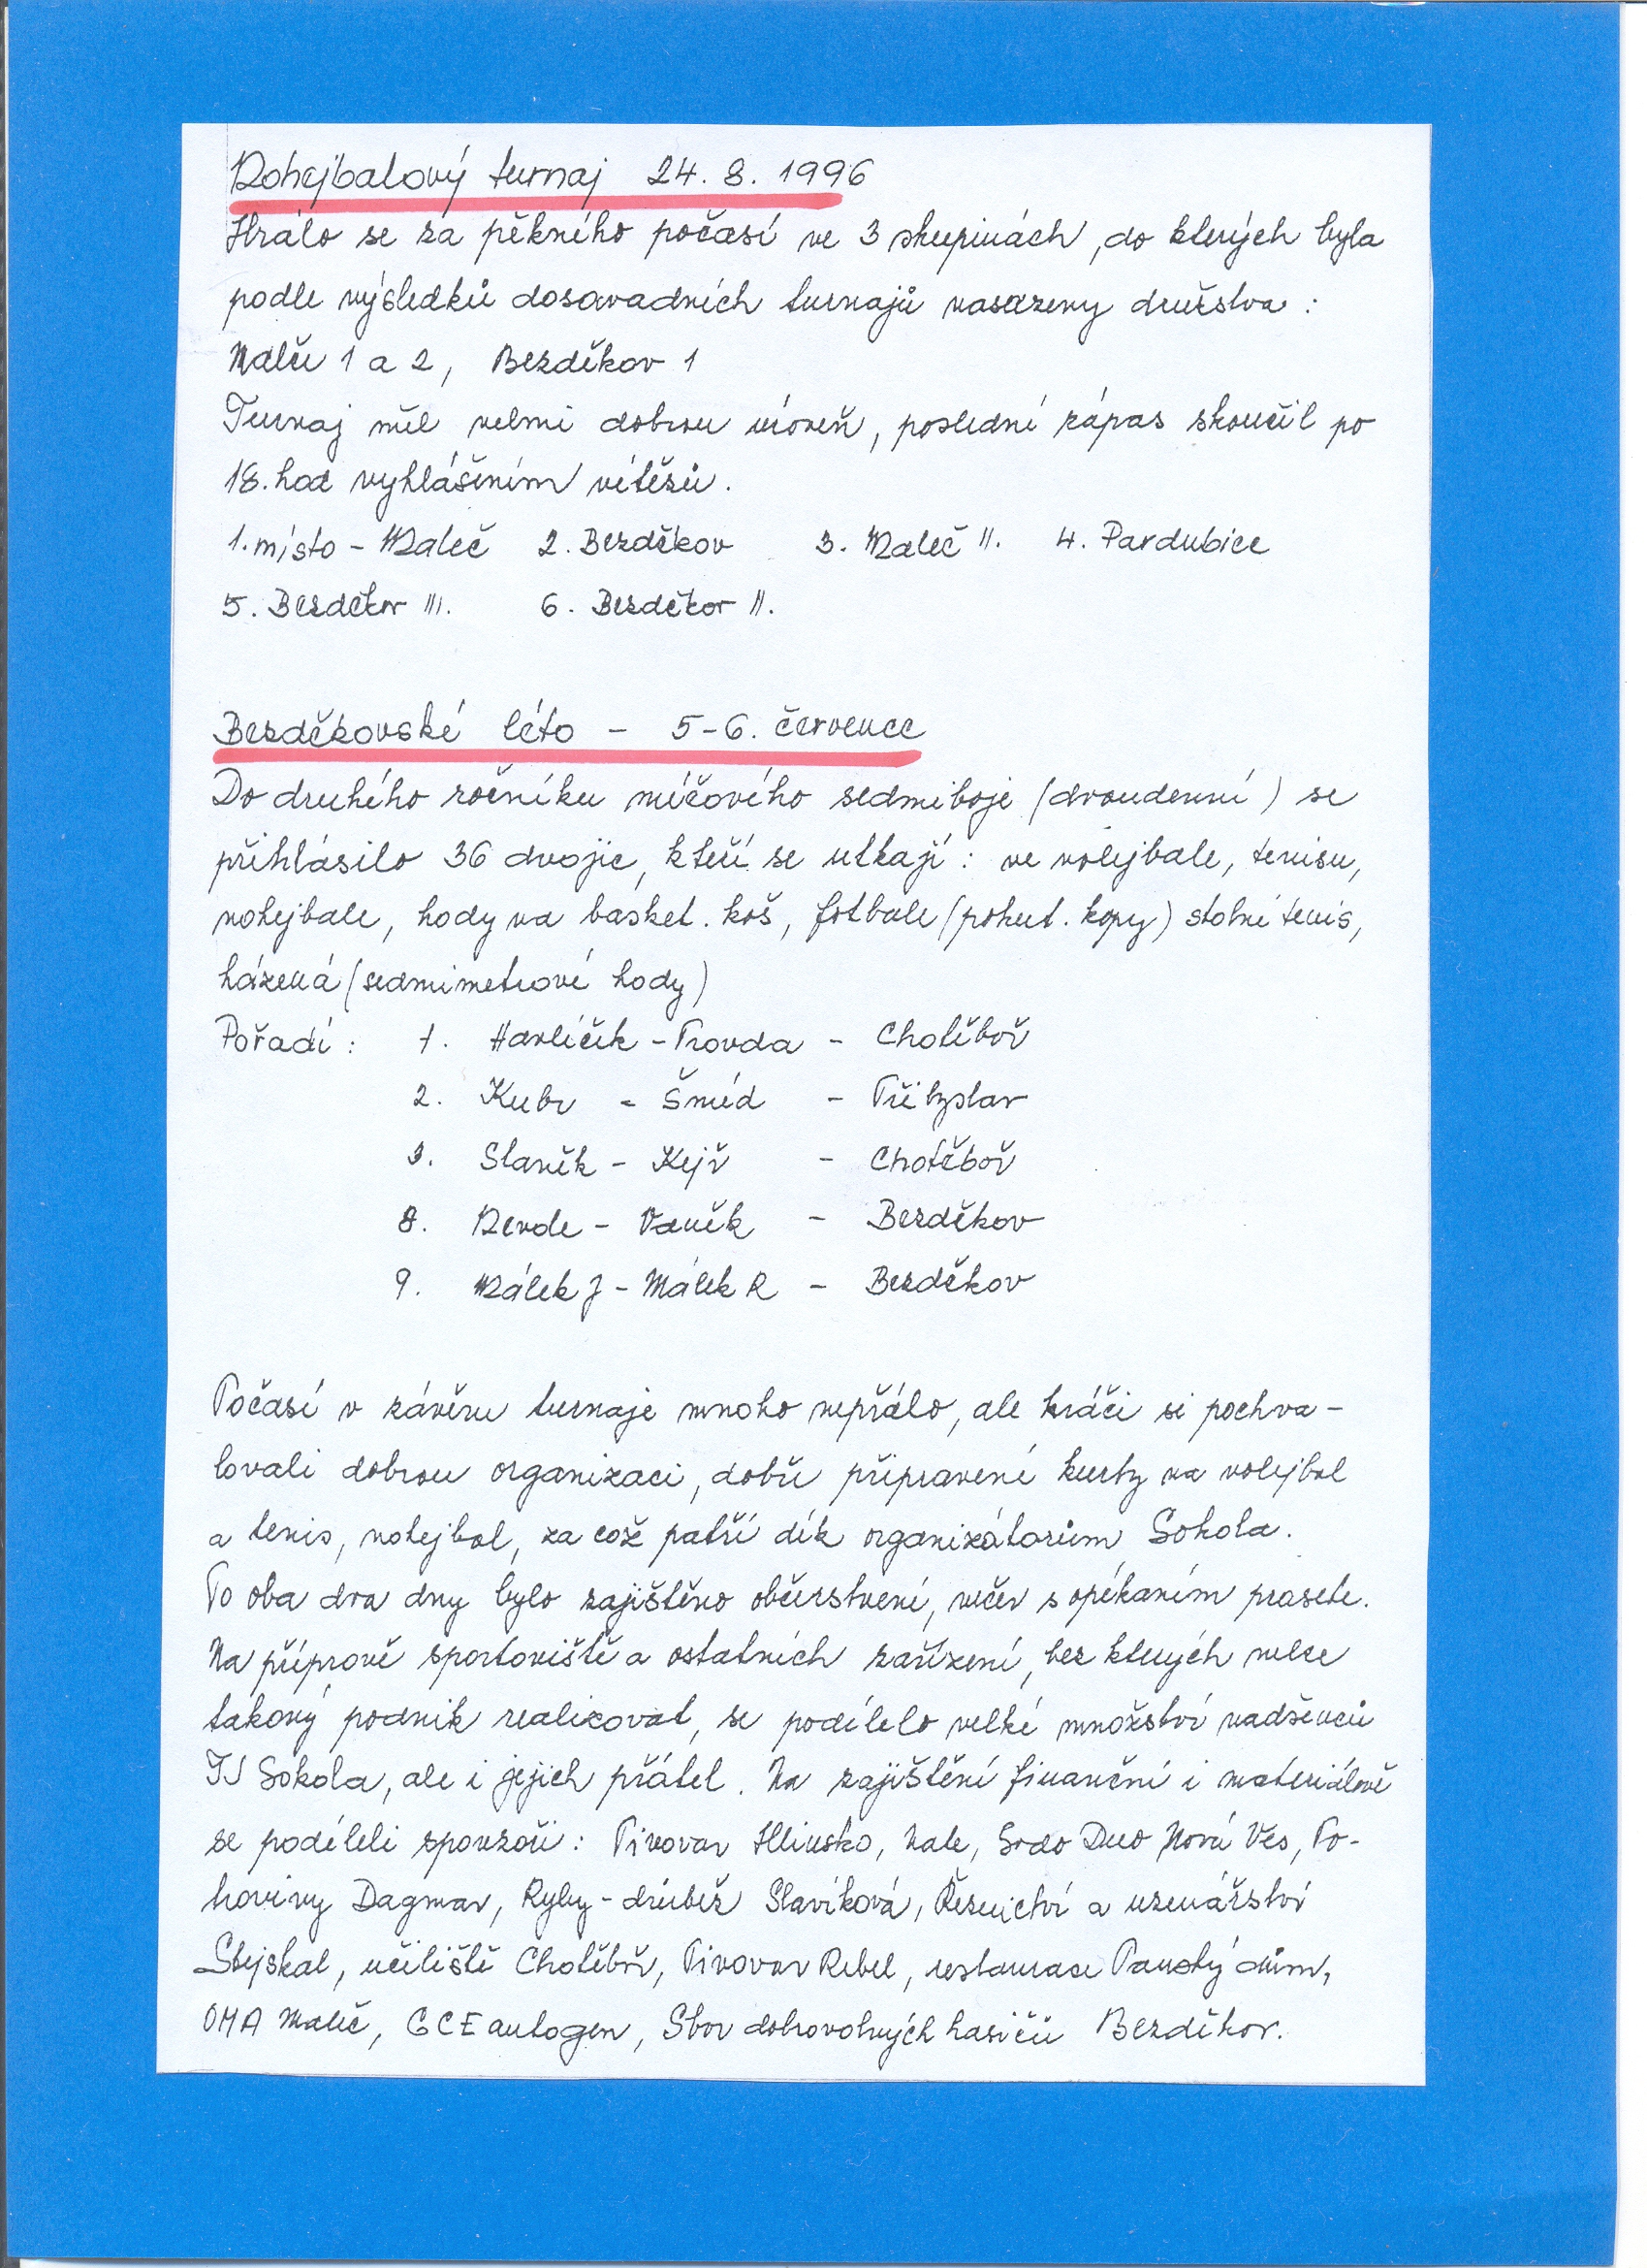 Nohejbalový turnaj 24. 8. 1996
Hrálo se za pěkného počasí ve 3 skupinách, do kterých byla
podle výsledků dosavadních turnajů nasazeny družstva :
Maleč 1 a 2, Bezděkov 1
Turnaj měl velmi dobrou úroveň, poslední zápas skončil po
18. hod vyhlášením vítězů.
1. místo - Maleč 2. Bezděkov 3. Maleč II. 4. Pardubice
5. Bezděkov III. 6. Bezděkov II.
Bezděkovské léto - 5-6. července
Do druhého ročníku míčového sedmiboje (dvoudenní) se
přihlásilo 36 dvojic, kteří se utkají : ve volejbale, tenisu,
nohejbale, hody na basket. koš, fotbale (pokut. kopy) stolní tenis,
házená (sedmimetrové hody)
Pořadí : 1. Havlíček - Provda - Chotěboř
2. Kubr - Šmíd - Přibyslav
3. Slaněk - Kejř - Chotěboř
8. Nevole - Vaněk - Bezděkov
9. Málek J - Málek R - Bezděkov
Počasí v závěru turnaje mnoho nepřálo, ale hráči si pochva-
lovali dobrou organizaci, dobře připravené kurty na volejbal
a tenis, nohejbal, za což patří dík organizátorům Sokola.
Po oba dva dny bylo zajištěno občerstvení, večer s opékaním prasete.
Na přípravě sportoviště a ostatních zařízení, bez kterých nelze
takový podnik realizovat, se podílelo velké množství nadšenců
TJ Sokola, ale i jejich přátel. Na zajištění finanční i materiálově
se podíleli sponzoři : Pivovar Hlinsko, Duo Nová Ves, Po-
hoviny Dagmar, Ryby - drůbež Slavíková, Řeznictví a uzenářství
Stejskal, učiliště Chotěbř, Pivovar Rebel, restaurace Panský dům,
OMA Maleč, GCE autogen, Sbor dobrovolných hasičů Bezděkov.